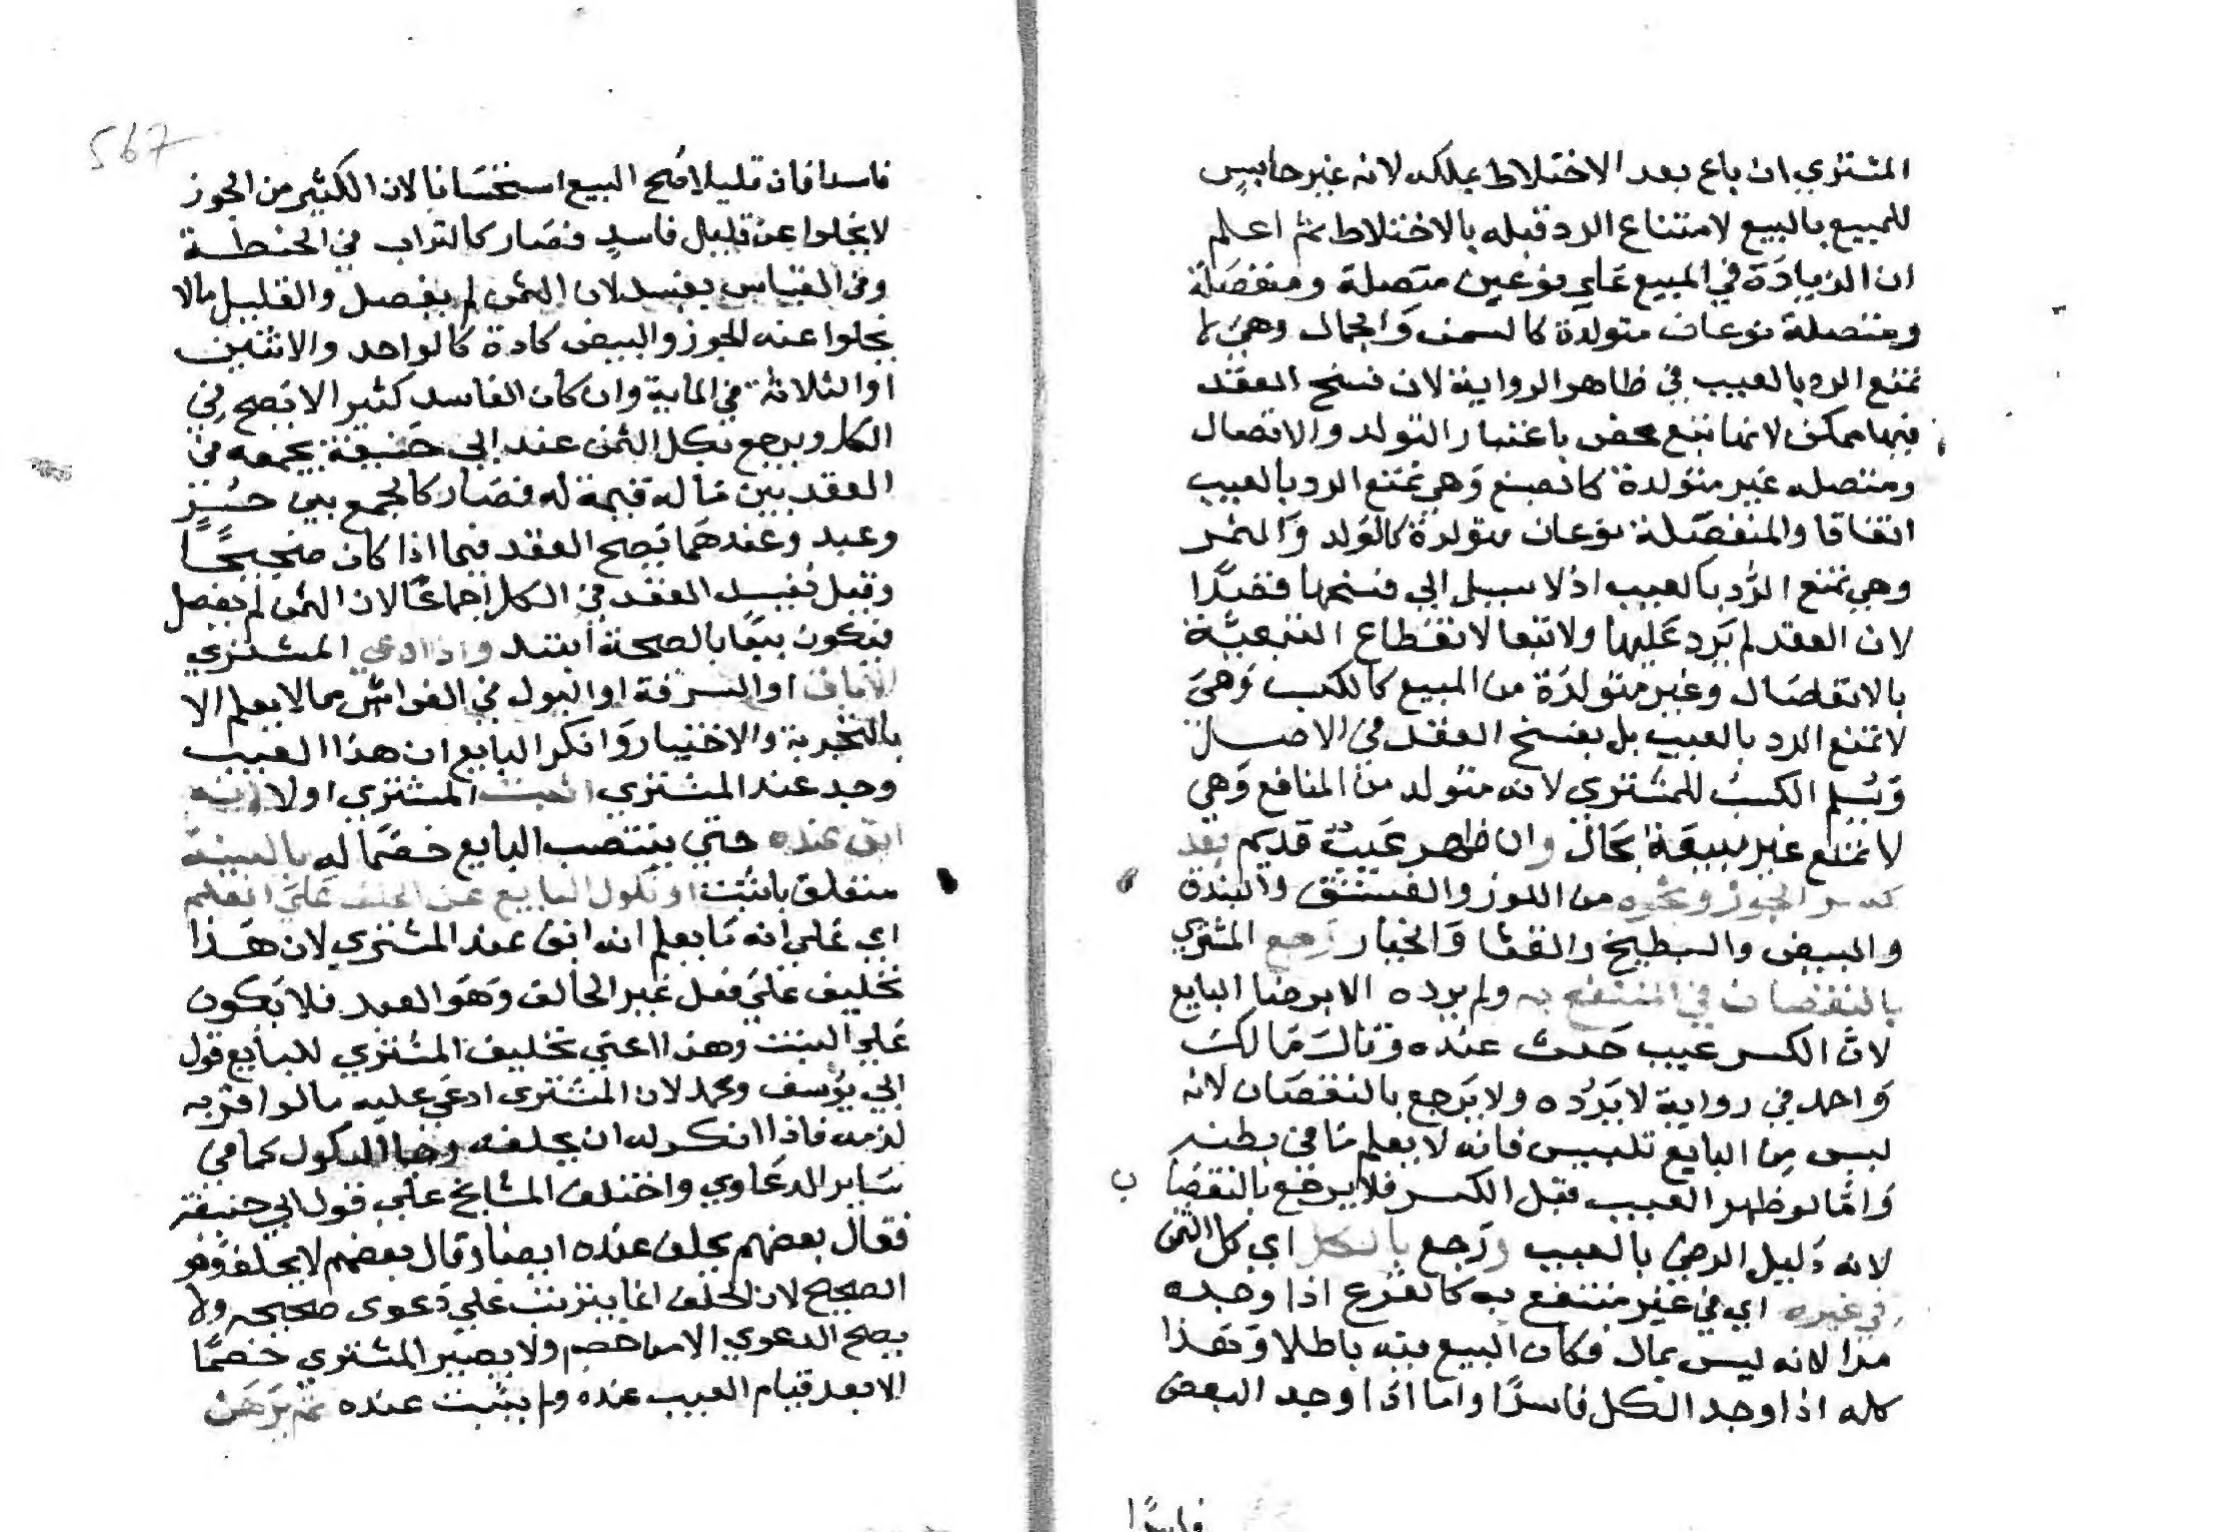 المشتري ان باع بعد الاختلاط بملكه لانه غير حابس
للمبيع بالبيع لامتناع الرد قبله بالاختلاط ثم اعلم
ان الزيادة في المبيع علي نوعين متصلة ومنفصلة
ومتصلة نوعان متولدة كالسمن والجمال وهي لا
تمنع الرد بالعيب في ظاهر الرواية لان فسخ العقد
فيها ممكن لانها تبع محض باعتبار التولد والاتصال
ومتصله غير متولدة كالصبغ وهي تمنع الرد بالعيب
اتفاقا والمنفصلة نوعان متولدة كالولد والثمر
وهي تمنع الرد بالعيب اذ لا سبيل الي فسخها قصدا
لان العقد لم يرد عليها ولا تبعا لانقطاع التبعية
بالانفصال وغير متولدة من المبيع كالكسب وهي
لا تمنع الرد بالعيب بل يفسخ العقد في الاصل
ويسلم الكسب للمشتري لانه متولد من المنافع وهي
لا تمنع غير مبيعة بحال وان ظهر عيب قديم بعد
كسر الجوز ونحوه من اللوز والفستق والبندة
والبيض والبطيخ والقثا والخيار رجع المشتري
بالنقصان في المنتفع به ولم يرده الا برضا البايع
لان الكسر عيب حدث عنده وقال مالك
واحمد في رواية لا يرده ولا يرجع بالنقصان لانه
ليس من البايع تلبيس فانه لا يعلم ما في بطنه
واما لو ظهر العيب قبل الكسر فلا يرجع بالنقصا ن
لانه دليل الرضي بالعيب ورجع بالكل اي كل الثمن
في غيره اي في غير منتفع به كالقرع اذا وجده
مرا لانه ليس بمال فكان البيع فيه باطلا وهذا
كله اذا وجد الكل فاسدا واما اذا وجد البعض
فاسدا
567
فاسدا فان قليلا صح البيع استحسانا لان الكثير من الجوز
لا يخلوا عن قليل فاسد فصار كالتراب في الحنطة
وفي القياس يفسد لان الثمن لم يفصل والقليل مالا
يخلوا عنه الجوز والبيض كادة كالواحد والاثنين
او الثلاثة في الماية وان كان الفاسد كثيرا لا يصح في
الكل ويرجع بكل الثمن عند ابي حنيفة بجمعه في
العقد بين ما له قيمة له فصار كالجمع بين حر
وعبد وعندهما يصح العقد فيما اذا كان صحيحا
وقيل يفسد العقد في الكل اجماعا لان الثمن لم يفصل
فيكون بيعا بالصحة ابتدا واذا ادعي المشتري
الاباق او السرقة او البول في الفراش مما لا يعلم الا
بالتجربة والاختيار وانكر البايع ان هذا العيب
وجد عند المشتري اثبت المشتري اولا انه
ابق عنده حتي ينتصب البايع خصما له بالبينة
متعلق باثبت او نكول البايع عن الحلف علي العلم
اي علي انه ما يعلم انه ابق عند المشتري لان هذا
تحليف علي فعل غير الحالف وهو العبد فلا يكون
علي البتت وهذا اعني تحليف المشتري للبايع قول
ابي يوسف ومحمد لان المشتري ادعي عليه ما لو اقر به
لزمه فاذا انكر له ان يحلفه رجا النكول كما في
ساير الدعاوي واختلف المشايخ علي قول ابي حنيفة
فقال بعضهم يحلف عنده ايضا وقال بعضهم لا يحلف وهو
الصحيح لان الحلف انما يترتب علي دعوى صحيحه ولا
يصح الدعوي الا من خصم ولا يصير المشتري خصما
الا بعد قيام العيب عنده ولم يثبت عنده ثم برهن